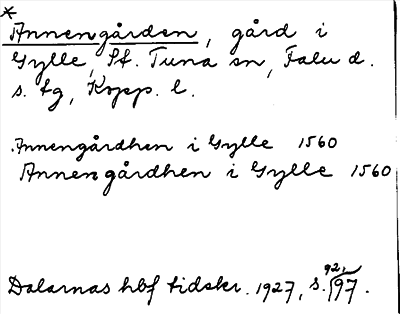 *
Annengården, gård i
Gylle, St. Tuna sn, Falu d.
s. tg, Kopp. l.
Annengårdhen i Gylle 1560
Annengårdhen i Gylle 1560
92,
Dalarnas hbf tidskr. 1927, s. 197.